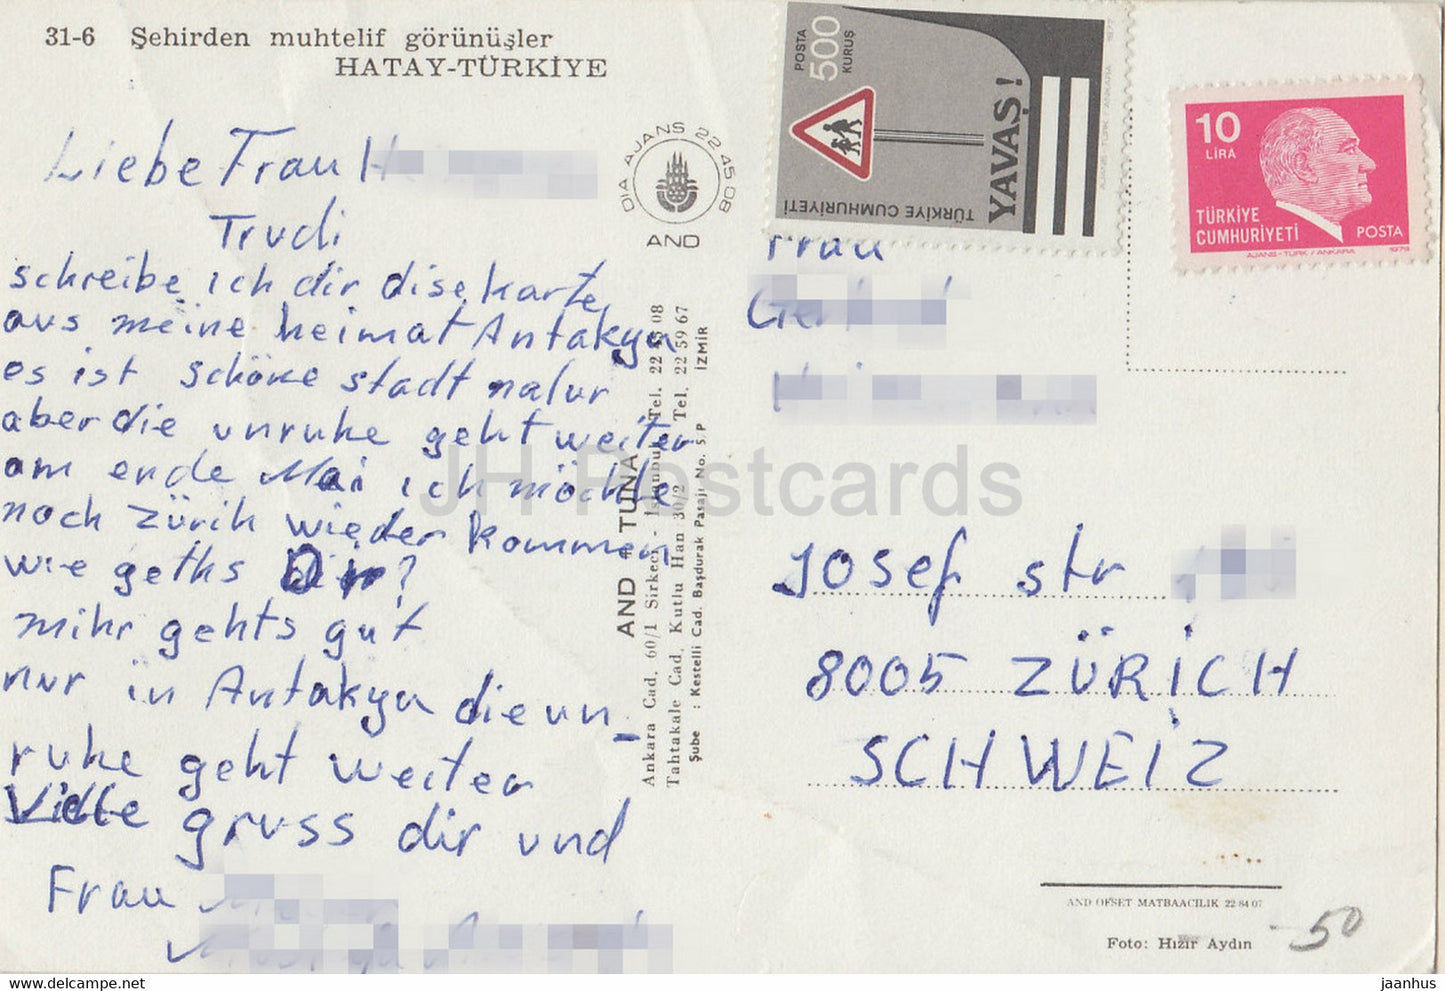 31-6 Şehirden muhtelif görünüşler
HATAY-TÜRKİYE
Liebe Frau H
Trudi
schreibe ich dir dise karte
aus meine heimat Antakya
es ist schöne stadt nalur
aber die unruhe geht weiter
am ende Mai ich möchte
noch zürih wieder kommen
wie geths Dir?
mihr gehts gut
nur in Antakya die un_
ruhe geht weiter
Viele gruss dir und
Frau
DIA AJANS 22 45 08
AND
AND - TUNA
Ankara Cad. 60/1 Sirkeci - İstanbul Tel. 22 45 08
Tahtakale Cad. Kutlu Han 30/2 Tel. 22 59 67
Şube : Kestelli Cad. Başdurak Pasajı No. 5/P İZMİR
POSTA
500
KURUŞ
YAVAŞ!
TÜRKİYE CUMHURİYETİ
AJANS-TÜRK/ANKARA
10
LİRA
TÜRKİYE
CUMHURİYETİ
POSTA
AJANS-TÜRK/ANKARA
Frau
Josef str
8005 ZÜRİCH
SCHWEİZ
AND OFSET MATBAACILIK 22 84 07
Foto: Hızır Aydın
50
JH Postcards
https://www.jhpostcards.com
jaanhus